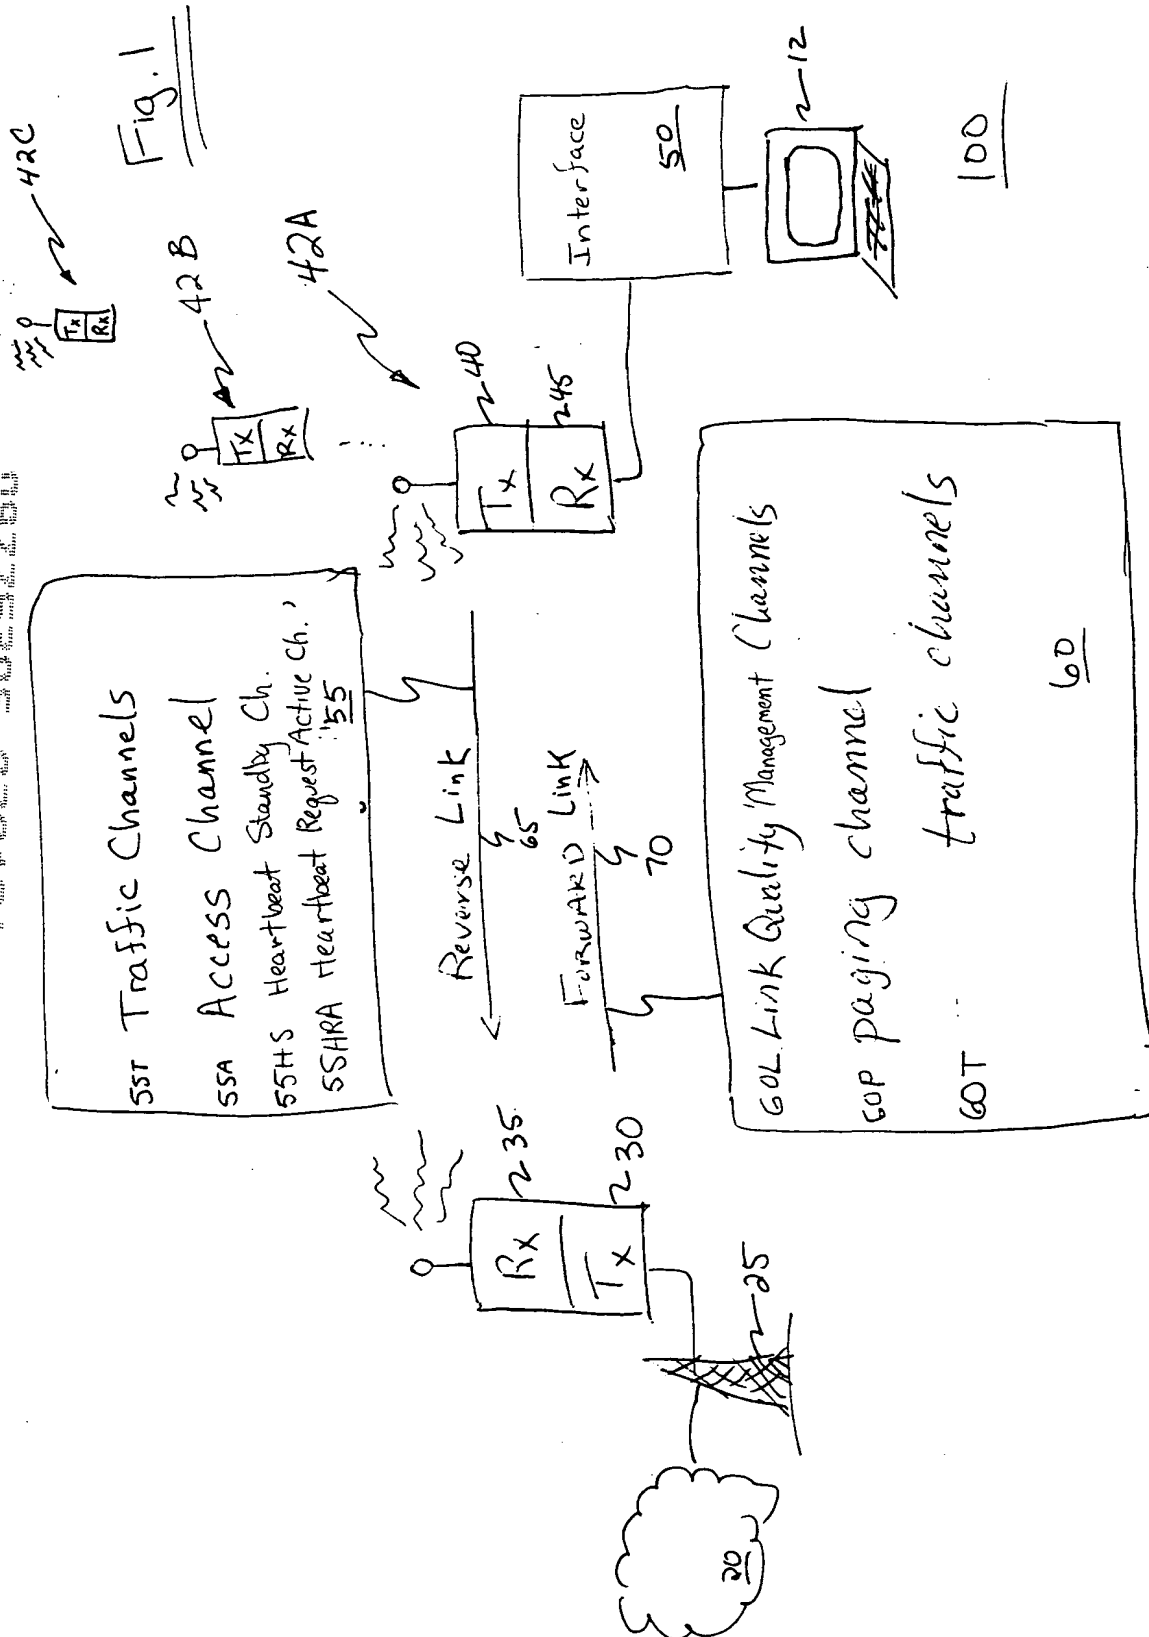 Fig. 1
42C
Tx
Rx
42B
Tx
Rx
42A
40
Tx
45
Rx
Interface
50
12
100
55T Traffic Channels
55A Access Channel
55HS Heartbeat Standby Ch.
55HRA Heartbeat Request Active Ch.
55
Reverse Link
65
FORWARD Link
70
60L Link Quality Management Channels
60P paging channel
60T ... traffic channels
60
35
Rx
30
Tx
25
20